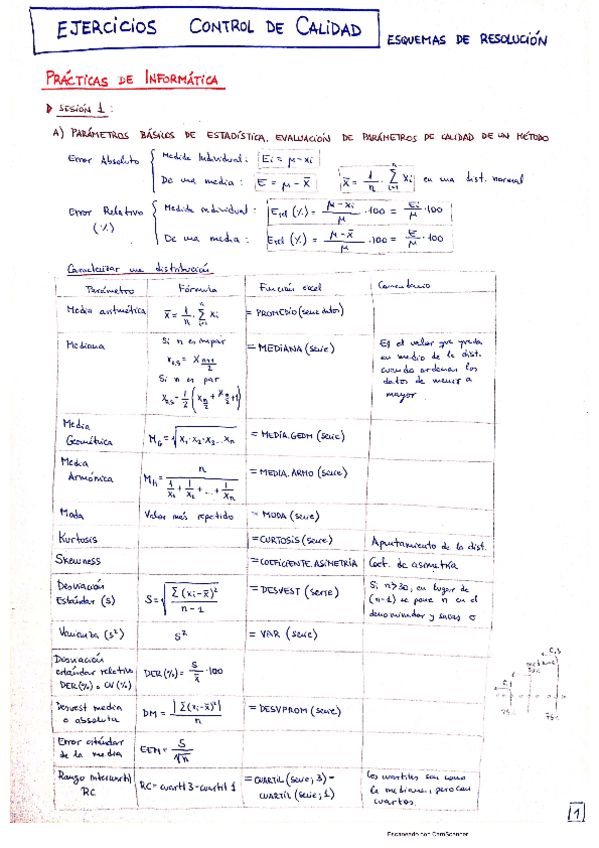 EJERCICIOS CONTROL DE CALIDAD
ESQUEMAS DE RESOLUCIÓN
PRÁCTICAS DE INFORMÁTICA
SESIÓN 1:
A) PARÁMETROS BÁSICOS DE ESTADÍSTICA. EVALUACIÓN DE PARÁMETROS DE CALIDAD DE UN MÉTODO
Error Absoluto { Medida Individual: Ei = μ - xi
De una media: E = μ - x̄   x̄ = 1/n · Σ xi en una dist. normal
Error Relativo (%) { Medida individual: Erel (%) = (μ - xi)/μ · 100 = Ei/μ · 100
De una media: Erel (%) = (μ - x̄)/μ · 100 = E/μ · 100
Caracterizar una distribución
Parámetro Fórmula Función excel Comentario
Media aritmética x̄ = 1/n · Σ xi = PROMEDIO (serie datos)
Mediana Si n es impar = MEDIANA (serie) Es el valor que queda
en medio de la dist.
cuando ordenan los
datos de menor a
mayor.
Si n es par
Media
Geométrica MG = √ x1·x2·x3...xn = MEDIA.GEOM (serie)
Media
Armónica Mh = n / (1/x1 + 1/x2 + ... + 1/xn) = MEDIA.ARMO (serie)
Moda Valor más repetido = MODA (serie)
Kurtosis = CURTOSIS (serie) Apuntamiento de la dist.
Skewness = COEFICIENTE.ASIMETRÍA Coef. de asimetría
Desviación
Estándar (S) S = √ Σ(xi - x̄)² / (n - 1) = DESVEST (serie) Si n>30, en lugar de
(n-1) se pone n en el
denominador y
Varianza (s²) S² = VAR (serie)
Desviación
estándar relativa DER (%) = S/x̄ · 100
DER (%) = CV (%)
Desvest media
o absoluta DM = |Σ(xi - x̄)²| / n = DESVPROM (serie)
Error estándar
de la media EEM = S/√n
Rango intercuartil
RC RC = cuartil 3 - cuartil 1 = CUARTIL (serie; 3) -
CUARTIL (serie; 1)
Los cuartiles son como
la mediana, pero con
cuartos.
1
Escaneado con CamScanner